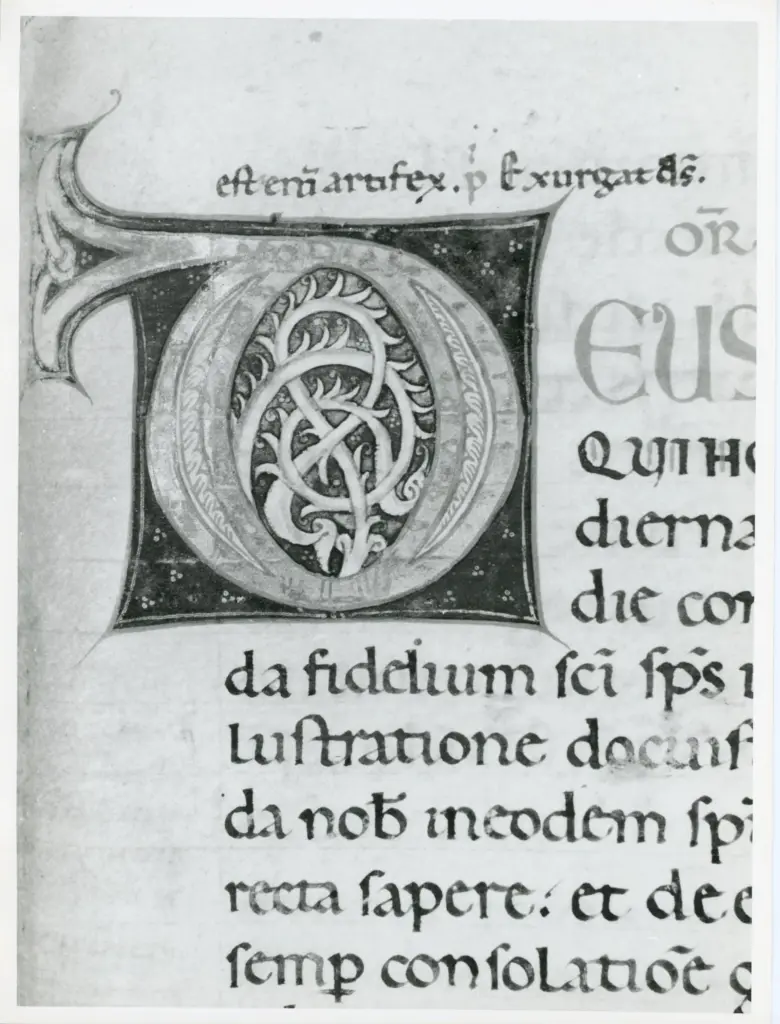 est eni̅ artifex. p Exurgat ds̅.
OR̅
DEUS
QUI HO
dierna
die cor
da fidelium sci̅ sp̅s
lustratione docuis
da nob̅ in eodem spi̅
recta sapere: et de e
semꝑ consolatio̅e